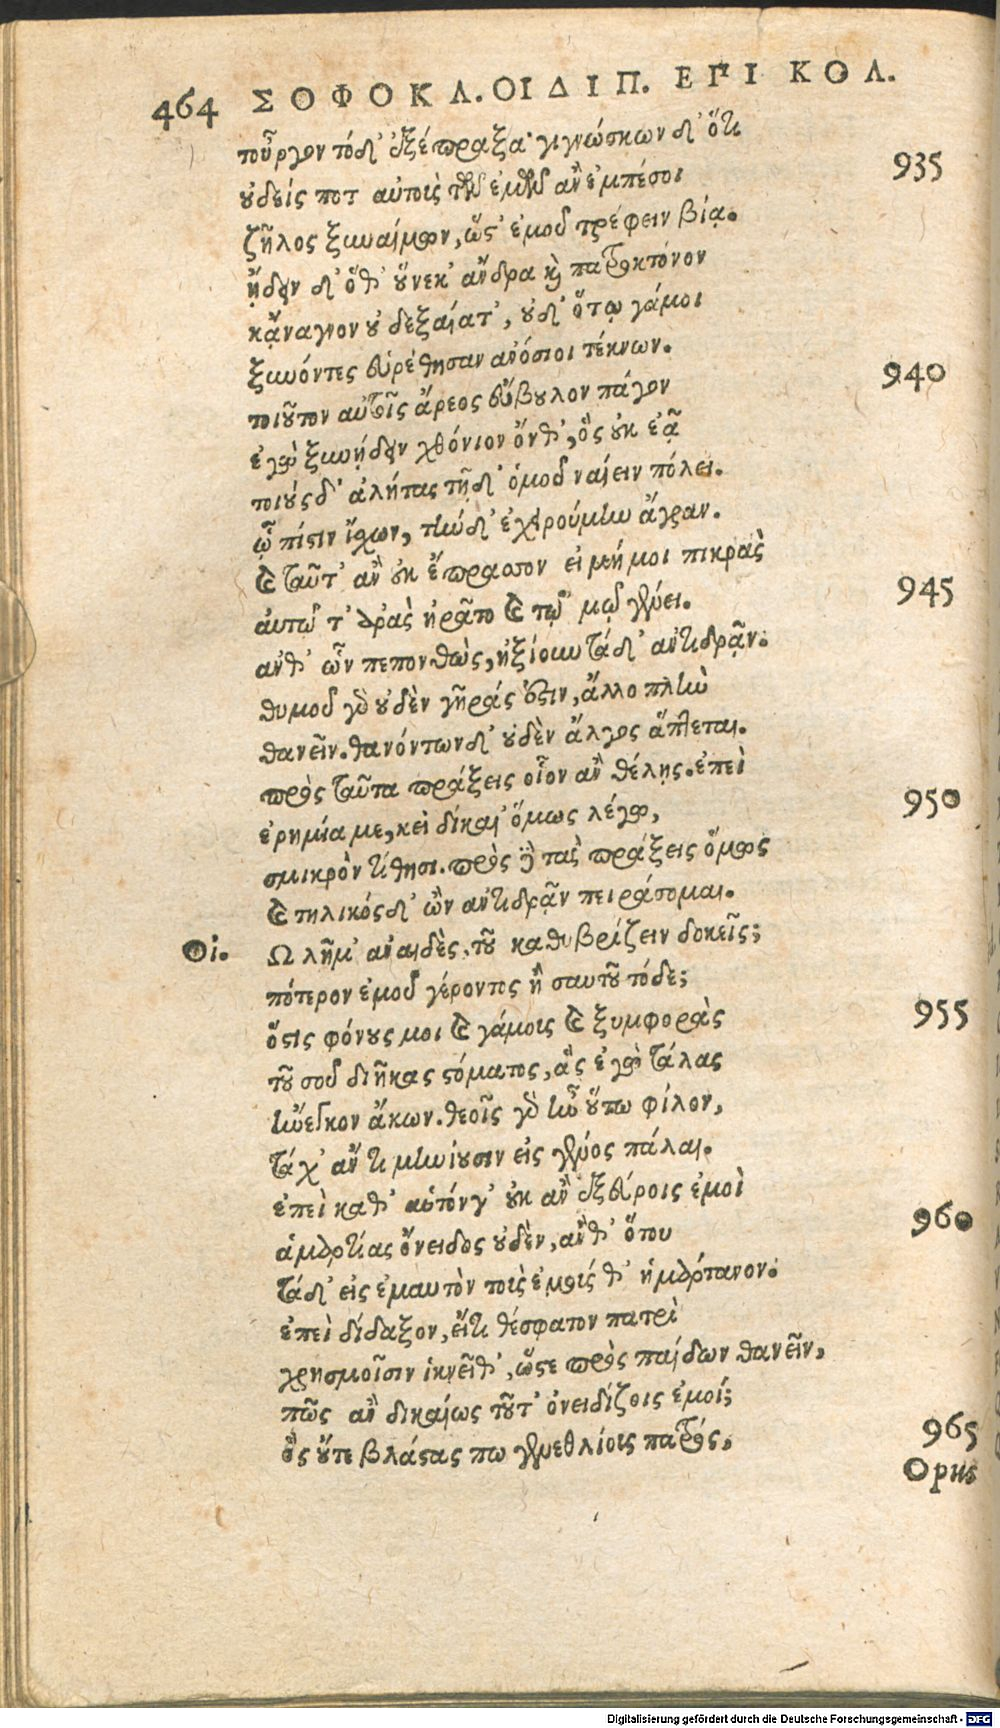 464 ΣΟΦΟΚΛ. ΟΙΔΙΠ. ΕΠΙ ΚΟΛ.
τοὖργον τόδ' ἐξέπραξα· γιγνώσκων δ' ὅτι
οὐδείς ποτ αὐτοὺς τῶν ἐμῶν ἂν ἐμπέσοι 935
ζῆλος ξυναίμων, ὥστ' ἐμοῦ τρέφειν βίᾳ.
ᾔδειν δ' ὅθ' οὕνεκ' ἄνδρα καὶ πατροκτόνον
κᾄναγνον οὐ δεξαίατ', οὐδ' ὅτῳ γάμοι
ξυνόντες εὑρέθησαν ἀνόσιοι τέκνων.
τοιοῦτον αὐτοῖς ἄρεος εὔβουλον πάγον 940
ἐγὼ ξυνῄδειν χθόνιον ὄνθ', ὃς οὐκ ἐᾷ
τοιούςδ' ἀλήτας τῇδ' ὁμοῦ ναίειν πόλει.
ᾧ πίστιν ἴσχων, τήνδ' ἐχειρούμην ἄγραν.
καὶ ταῦτ' ἂν οὐκ ἔπρασσον εἰ μή μοι πικρὰς
αὑτῷ τ' ἀρὰς ἠρᾶτο καὶ τῷ 'μῷ γένει. 945
ἀνθ' ὧν πεπονθὼς, ἠξίουν τάδ' ἀντιδρᾷν.
θυμοῦ γὰρ οὐδὲν γῆράς ἐστιν, ἄλλο πλὴν
θανεῖν. θανόντων δ' οὐδὲν ἄλγος ἅπτεται.
πρὸς ταῦτα πράξεις οἷον ἂν θέλῃς. ἐπεὶ
ἐρημία με, κεἰ δίκαι' ὅμως λέγω, 950
σμικρὸν τίθησι. πρὸς δὲ τὰς πράξεις ὅμως
καὶ τηλικόςδ' ὢν ἀντιδρᾷν πειράσομαι.
Οἰ. Ω λῆμ' ἀναιδὲς, τοῦ καθυβρίζειν δοκεῖς;
πότερον ἐμοῦ γέροντος ἢ σαυτοῦ τόδε;
ὅστις φόνους μοι καὶ γάμοις καὶ ξυμφορὰς 955
τοῦ σοῦ διῆκας στόματος, ἃς ἐγὼ τάλας
ἤνεγκον ἄκων. θεοῖς γὰρ ἦν οὕτω φίλον,
τάχ' ἄν τι μηνίουσιν εἰς γένος πάλαι.
ἐπεὶ καθ' αὑτόν γ' οὐκ ἂν ἐξεύροις ἐμοὶ
ἁμαρτίας ὄνειδος οὐδὲν, ἀνθ' ὅτου 960
τάδ' εἰς ἐμαυτὸν τοὺς ἐμούς θ' ἡμάρτανον.
ἐπεὶ δίδαξον, εἴ τι θέσφατον πατρὶ
χρησμοῖσιν ἱκνεῖθ', ὥστε πρὸς παίδων θανεῖν,
πῶς ἂν δικαίως τοῦτ' ὀνειδίζοις ἐμοί;
ὃς οὔτε βλάστας πω γενεθλίους πατρός, 965
Ορμς